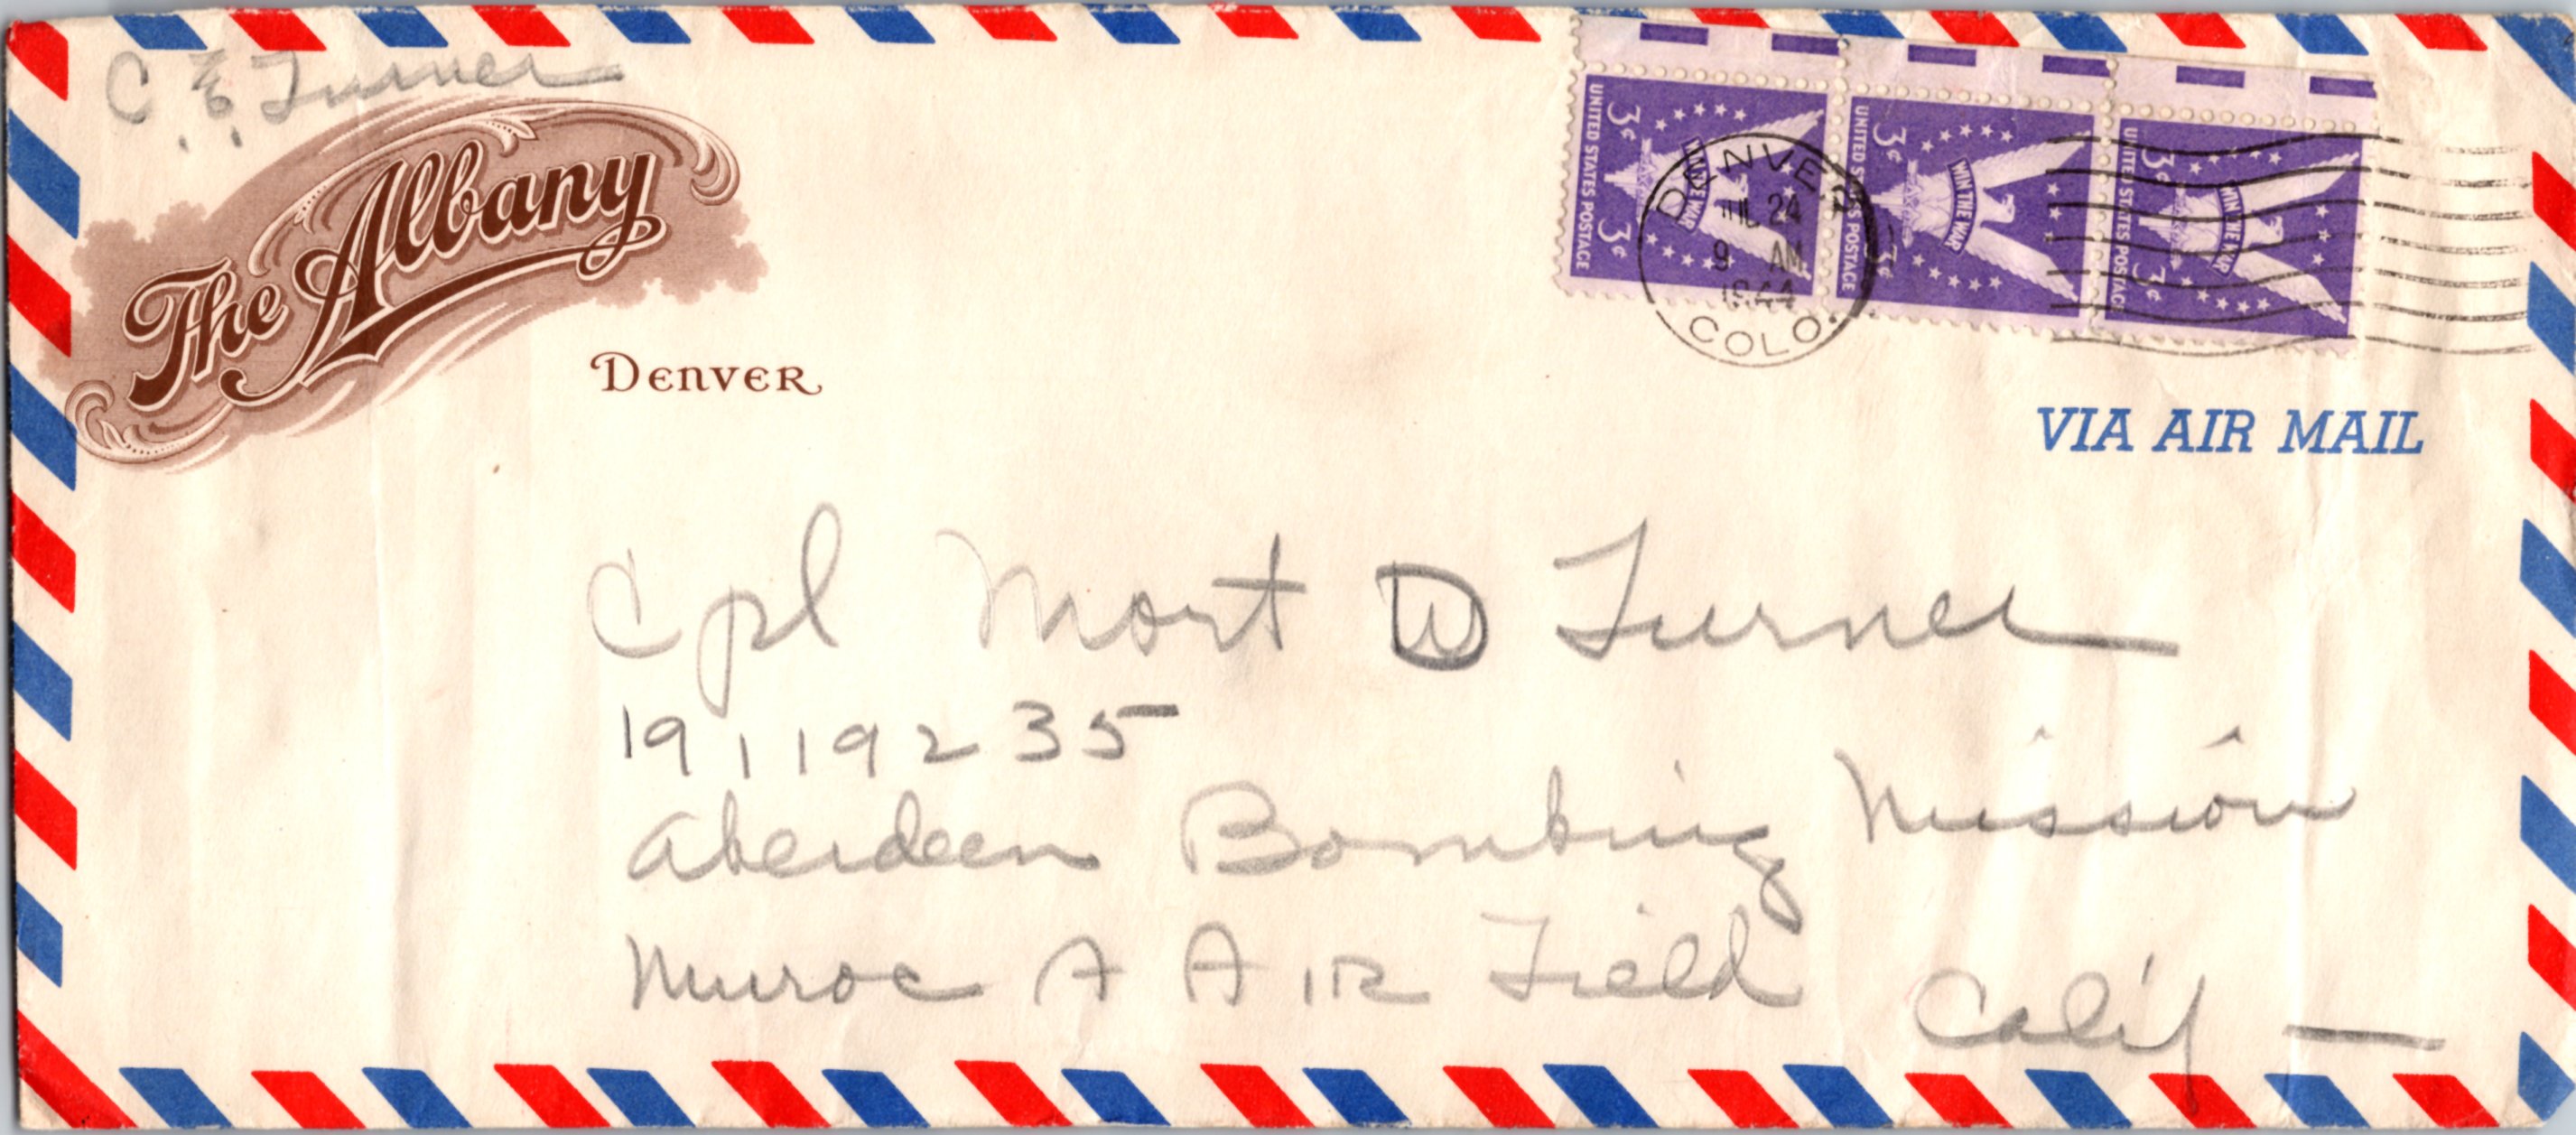 C. E. Turner
The Albany
Denver
UNITED STATES POSTAGE 3¢ 3¢ WIN THE WAR
UNITED STATES POSTAGE 3¢ 3¢ WIN THE WAR
UNITED STATES POSTAGE 3¢ 3¢ WIN THE WAR
DENVER
JUL 24
9 AM
1944
COLO.
VIA AIR MAIL
Cpl Mort W Turner
19119235
Aberdeen Bombing Mission
Muroc A AIR Field
Calif —